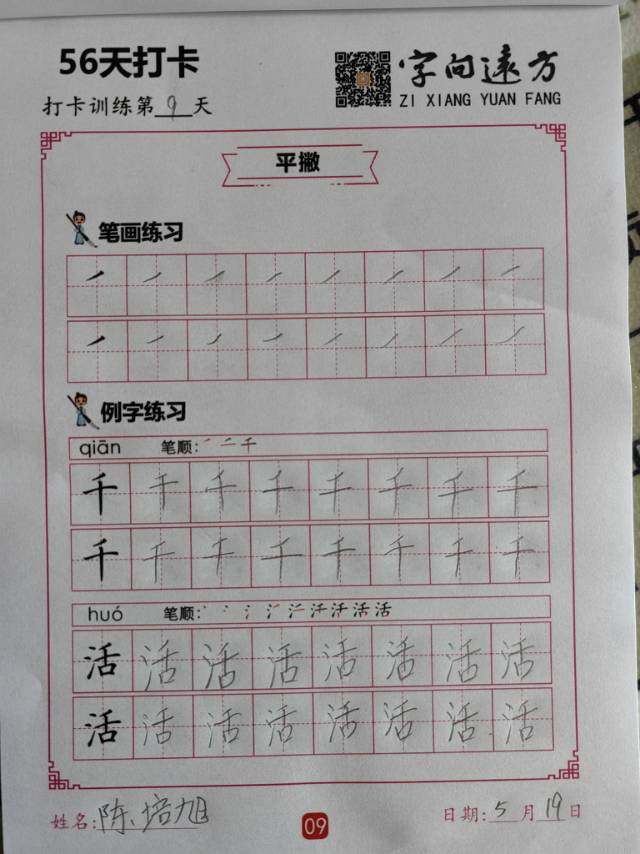 56天打卡
字向遠方
打卡训练第9天
ZI XIANG YUAN FANG
平撇
笔画练习
例字练习
qiān 笔顺:
千 千 千 千 千 千 千 千
千 千 千 千 千 千 千 千
huó 笔顺:
活 活 活 活 活 活 活 活
活 活 活 活 活 活 活 活
姓名:陈培旭
09
日期:5月19日